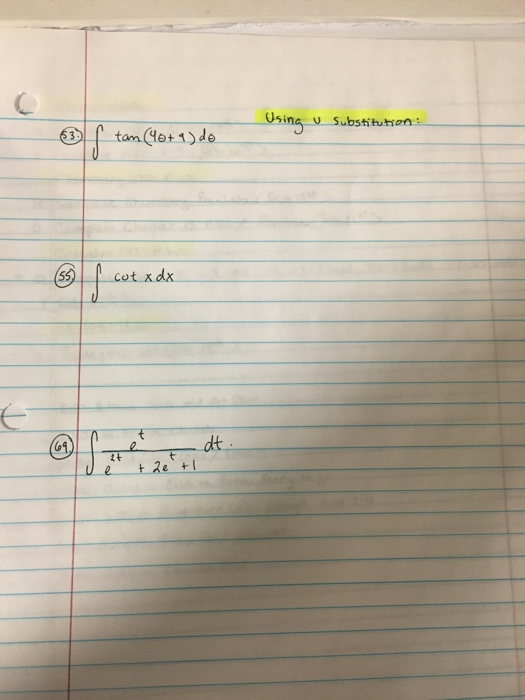 Using u substitution:
53. ∫ tan(4θ+9)dθ
55 ∫ cot x dx
69 ∫ e^t / (e^{2t} + 2e^t + 1) dt.